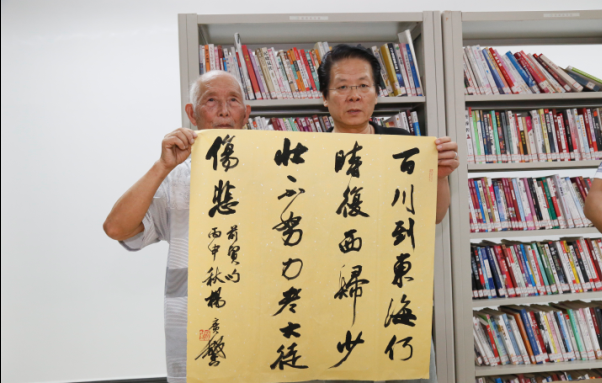 百川到東海何
時復西歸少
壮不努力老大徒
傷悲
前賢
丙申秋楊